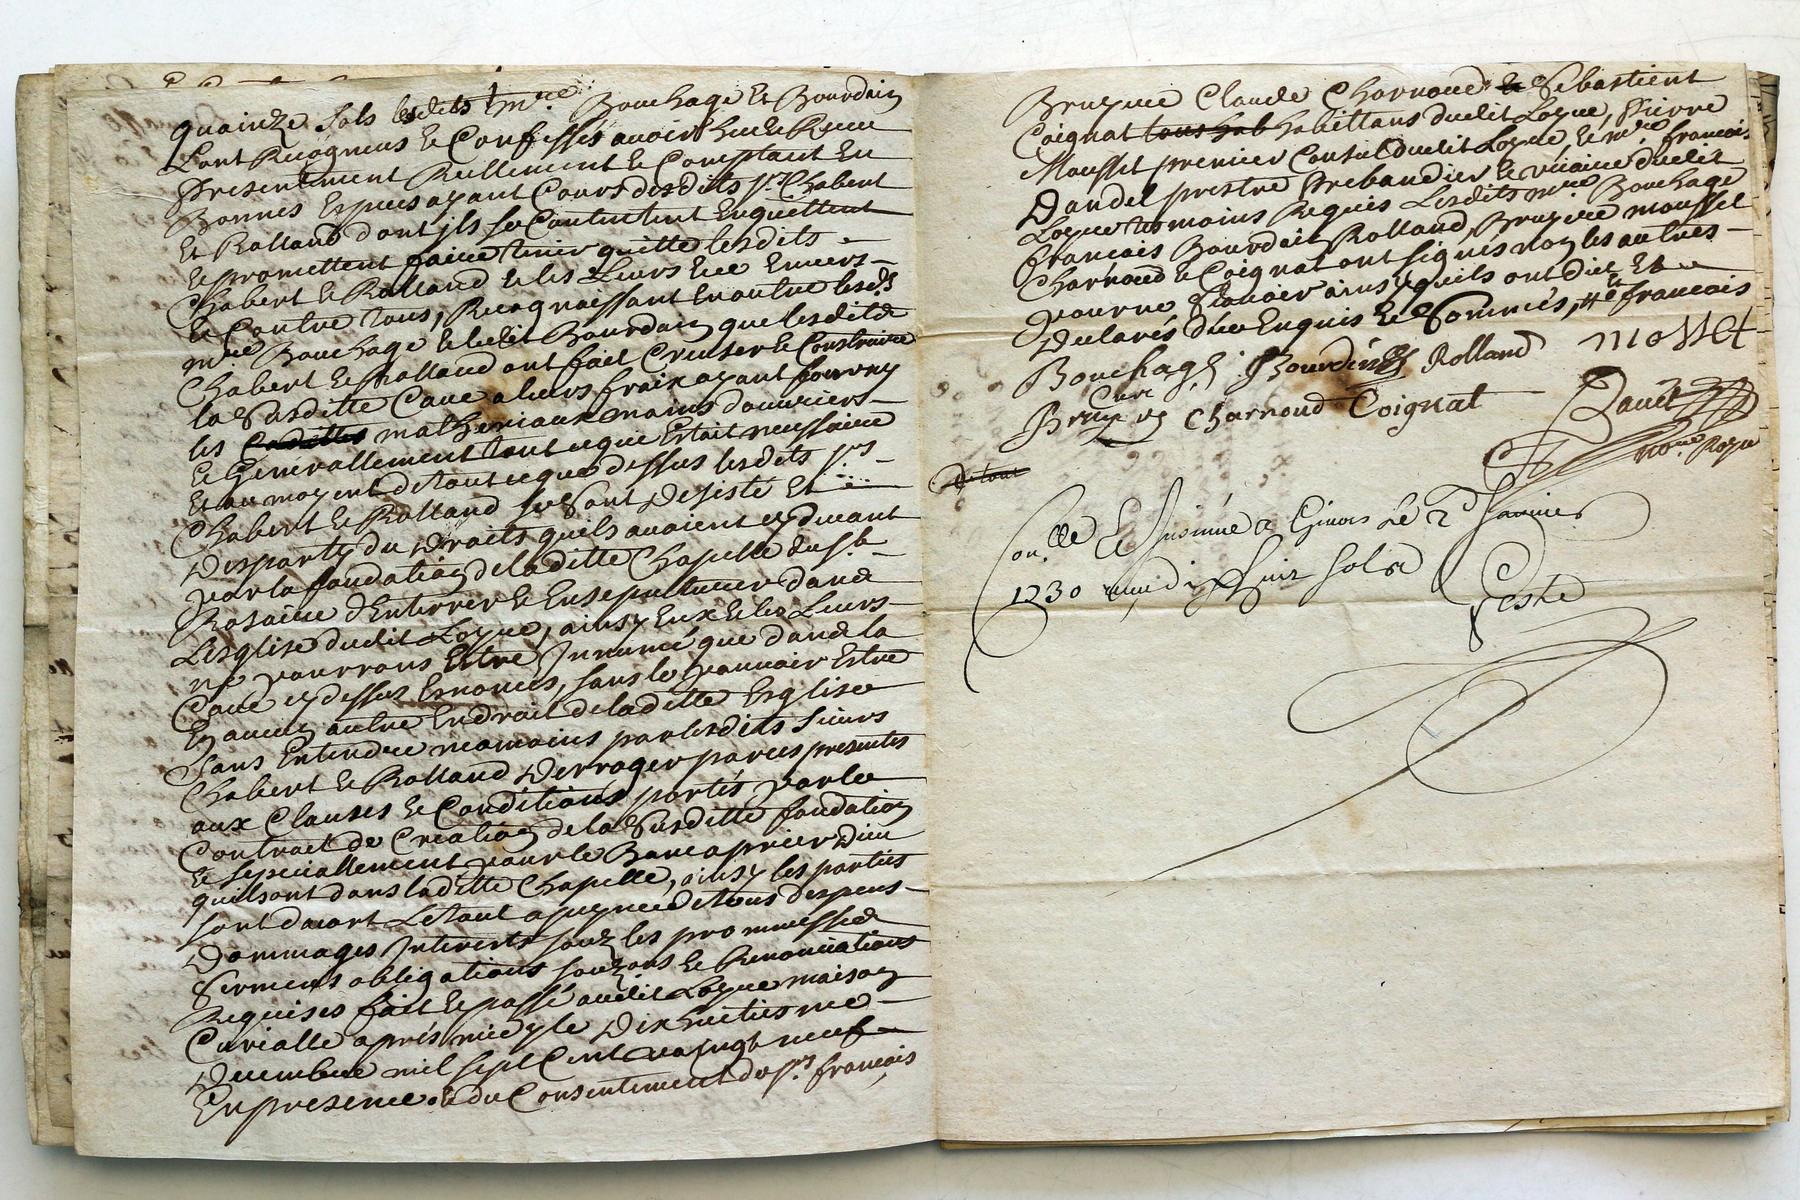 quainze sols lesdits mre Bouchage et Bourdain
sont Recogneus et Confesses avoir heu et Receu
Presentement Reellement et Comptant en
Bonnes Especes ayant Cours desdits srs Chabert
et Rolland dont jls se Contentent En quittent
et promettent faire tenir quitte lesdits
Chabert et Rolland et les Leurs hce Envers
et Contre tous, Recognaissant En outre lesds
mre Bouchage et ledit Bourdain que lesdits
Chabert et Rolland ont fait Creuser et Construire
la Susditte Cave a leurs fraix ayant fourny
les matheriaux mains douvriers
et Generallement tout ce qui Estait necessaire
Et au moyent de tout ce que dessus lesdits srs
Chabert et Rolland se Sont Desisté Et
Desparty du Droits quils avoient cy devant
par la fondation de la ditte Chapelle du st
Rosaire d'Enterrer et Ensepulturer dans
Lesglise dudit Loyue, ainsy Eux et les Leurs
ne pourrons Estre Jnnumé que dans la
Cave cy dessus Enoncés, sans le pouvoir Estre
En aucun autre Endroit de laditte Esglise
Sans Entendre neomoins par lesdits sieurs
Chabert et Rolland Derroger par ces presentes
aux Clauses et Conditions portés par le
Contract de Creation de la Susditte fondation
et specialement pour le Banc a prier Dieu
quils ont dans laditte Chapelle, ainsy les parties
sont dacort Letout a peyne de tous despens
Dommages Jnterests souz les prommesses
Serments obligations souzmis et Renonciations
Requises fait et passé audit Loyue maison
Curialle aprés midy le Dix huitiesme
Decembre mil sept Cent vaingt neuf
En presence et du Consentement de srs francois
Bruyere Claude Charnoud et Sebastient
Coignat tous hab habittans dudit Loyue, Pierre
Mousset premier Consul dudit Loyue, et mre francois
Dandel prestre Prebandier et vicaire dudit
Loyue tesmoins Requis Lesdits mre Bouchage
francois Bourdain Rolland, Bruyere mousset
Charnoud et Coignat ont signés non les autres
pour ne scavoir ainsy quils ont dit Et
Declarés de ce Enquis et Sommés, francois
Bouchage Curé Bourdin Rolland mosset
Bruyere Charnoud Coignat
nore Royal
De tout
Conlle Et Jnsinué a le 2d Janvier
1730 dix huit sols